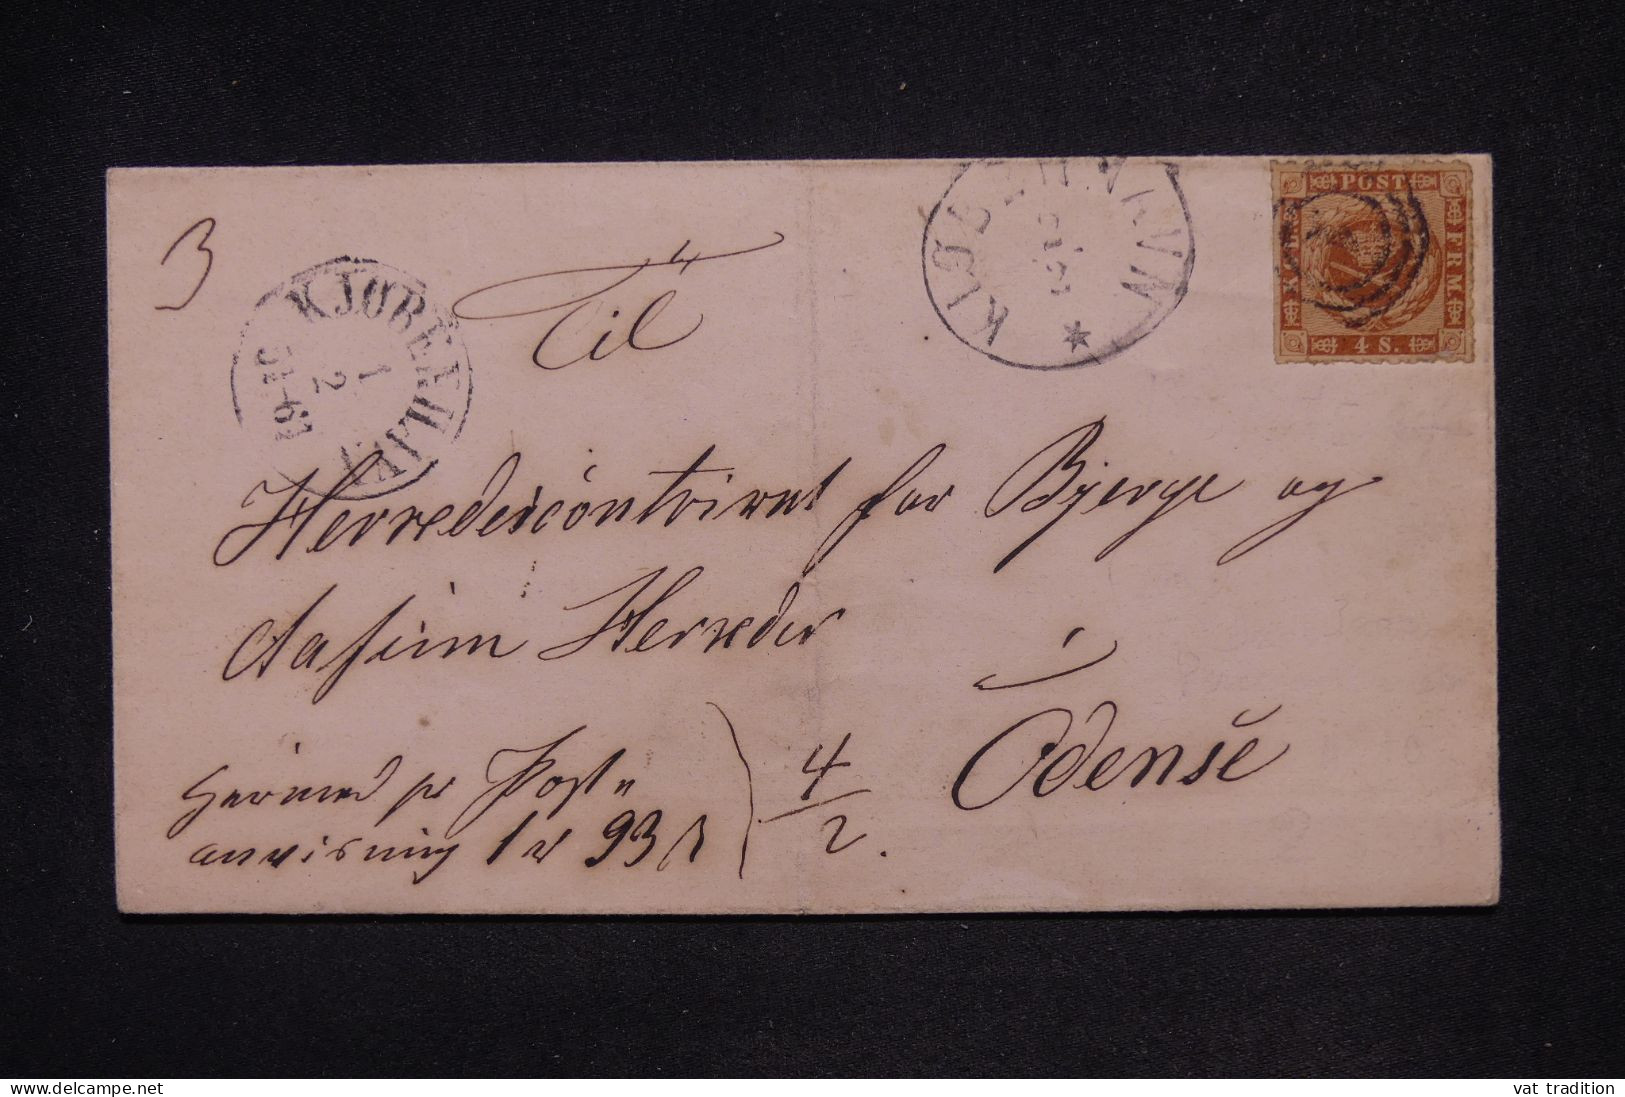 3
KJØBENHAVN
1
2
Til
KJØBENHAVN
POST
FRM
4 S.
Herredscontoiret for Bjerge og
Aasum Herreder
i
Odense
Hermed pr Post=
anvisning 1 rd 93 s
4/2.
vat tradition
www.delcampe.net